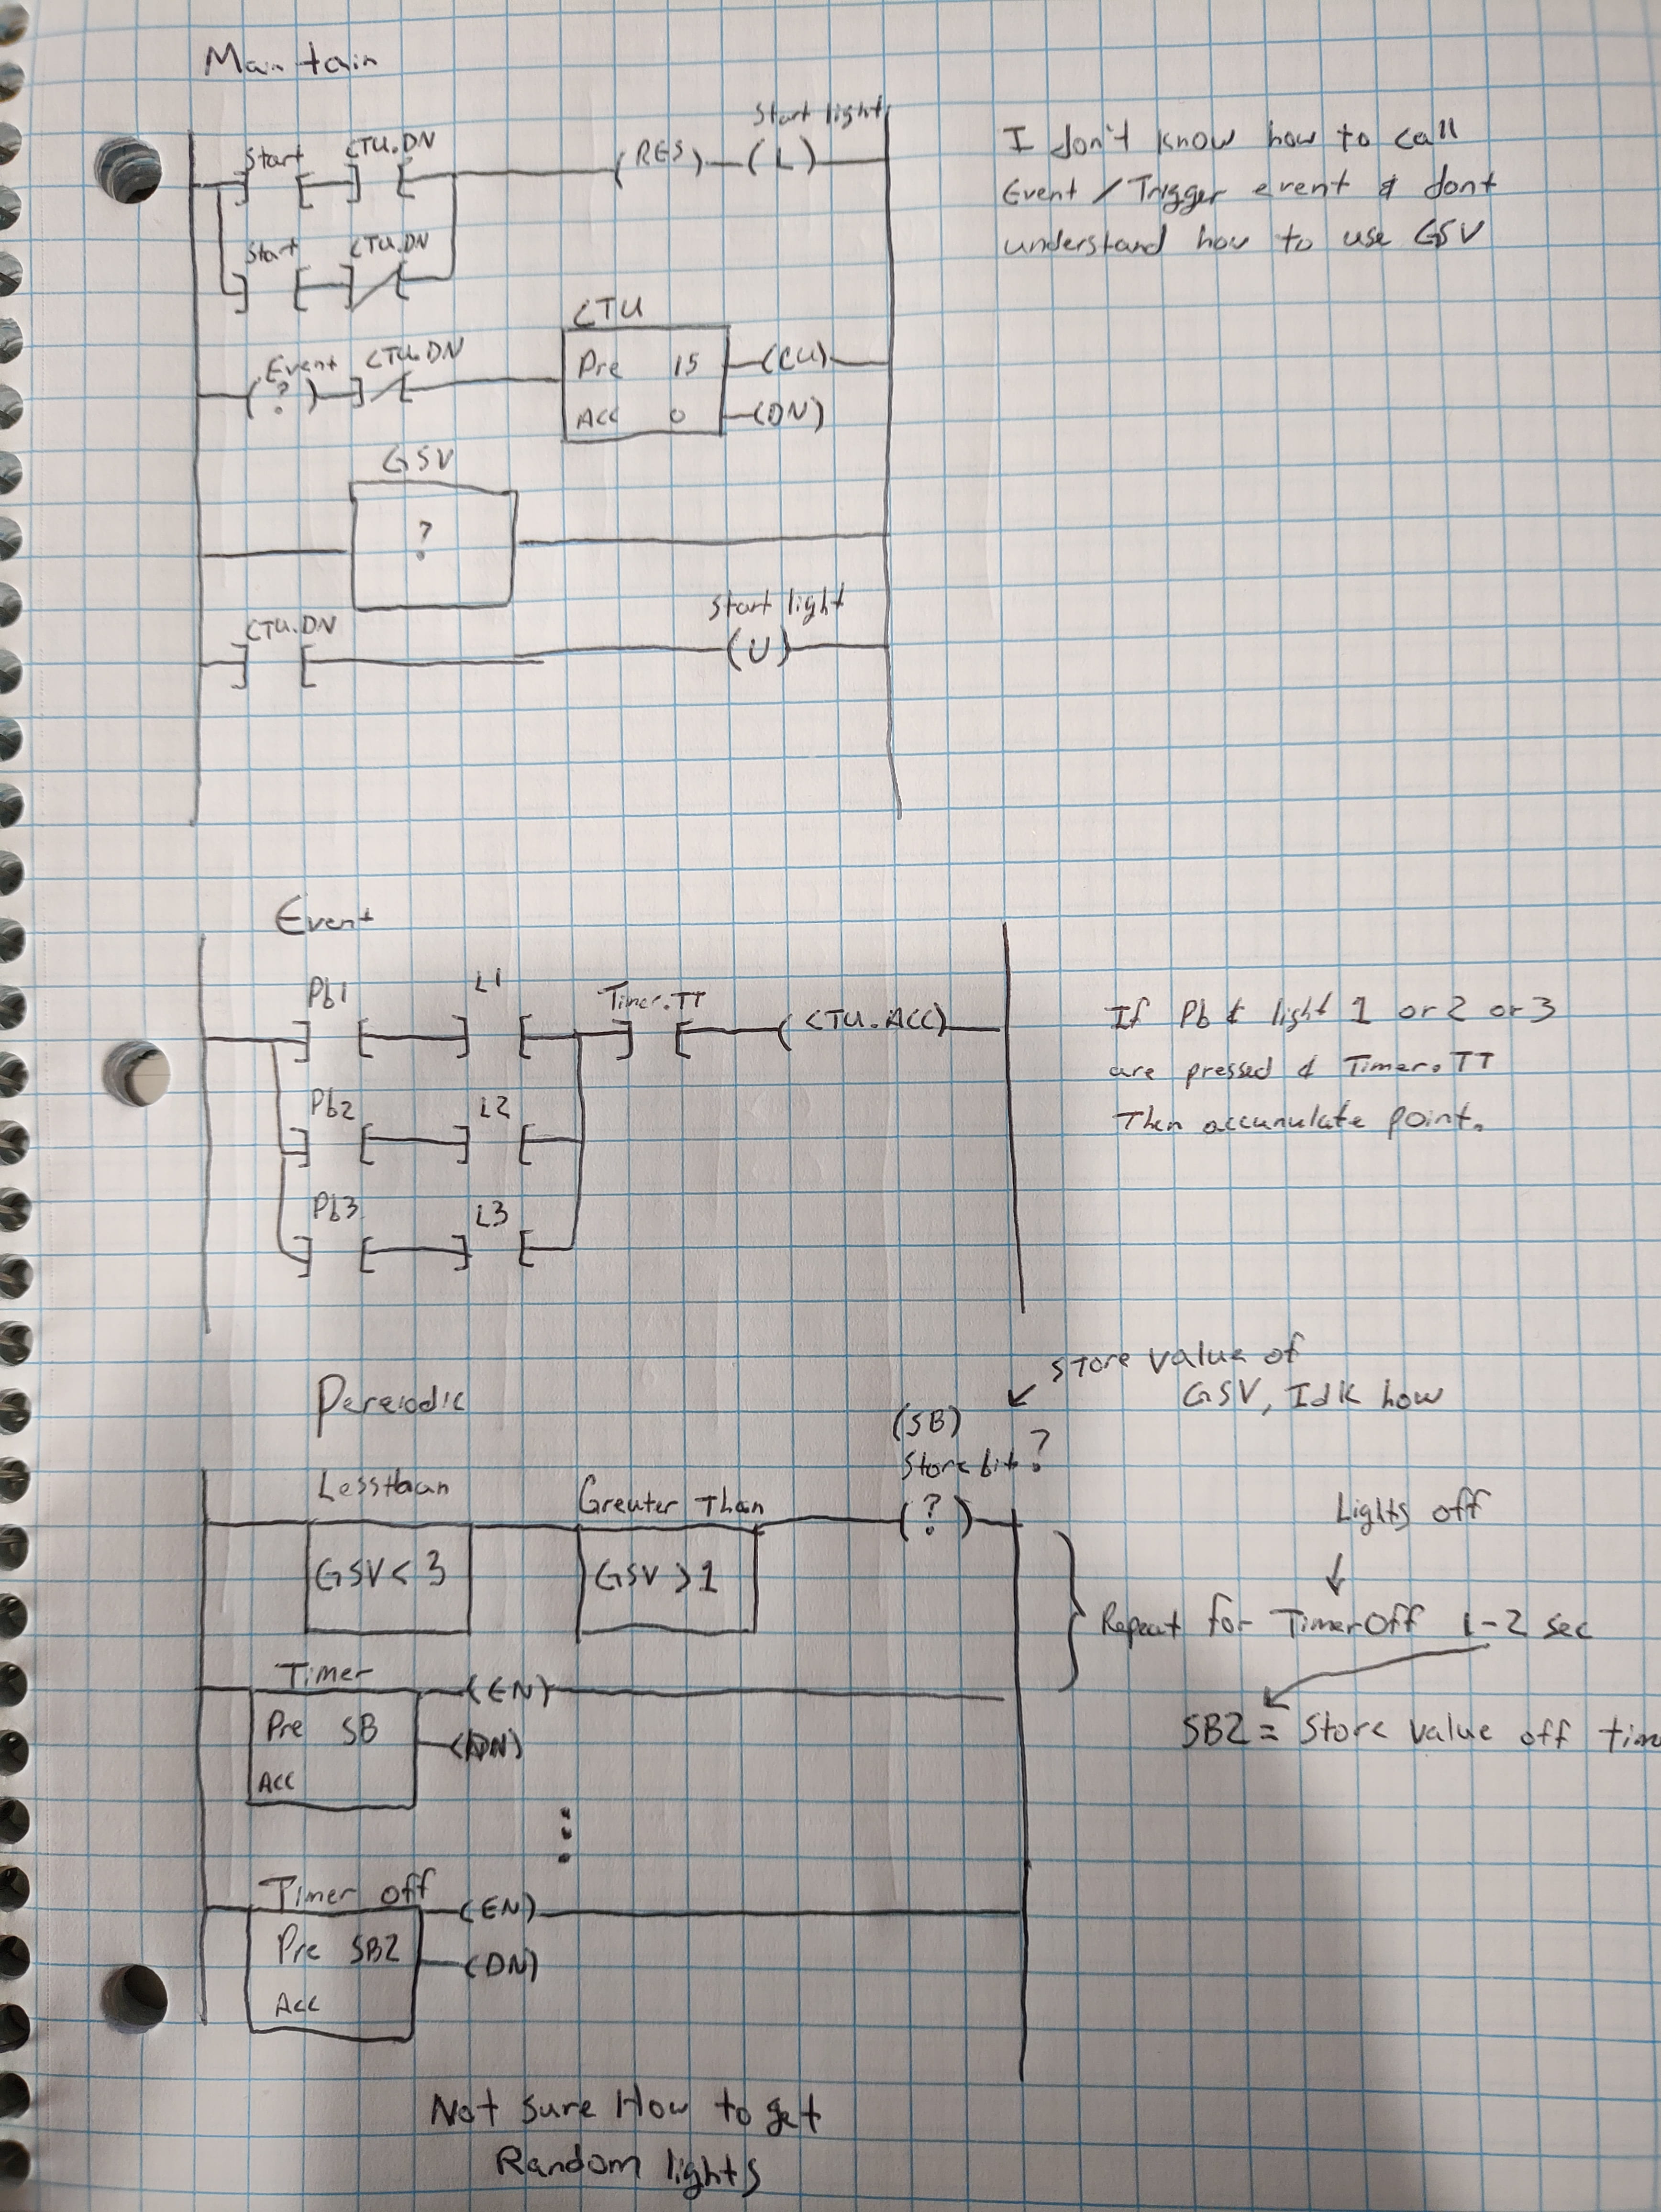 Maintain
Start light
Start CTU.DN
(RES) (L)
Start CTU.DN
I don't know how to call
Event / Trigger event & dont
understand how to use GSV
CTU
Event CTU.DN
(?)
Pre 15 (CU)
Acc 0 (DN)
GSV
?
Start light
CTU.DN
(U)
Event
Pb1 L1 Timer.TT
(CTU.ACC)
Pb2 L2
Pb3 L3
If Pb & light 1 or 2 or 3
are pressed & Timer.TT
Then accumulate point.
Pereiodic
store value of
GSV, Idk how
(SB)
Store bit?
Lessthan Greater Than
(?)
GSV < 3 GSV > 1
Lights off
Repeat for Timer Off 1-2 sec
SB2 = Store value off time
Timer
(EN)
Pre SB
(DN)
Acc
Timer off
(EN)
Pre SB2
(DN)
Acc
Not sure How to get
Random lights